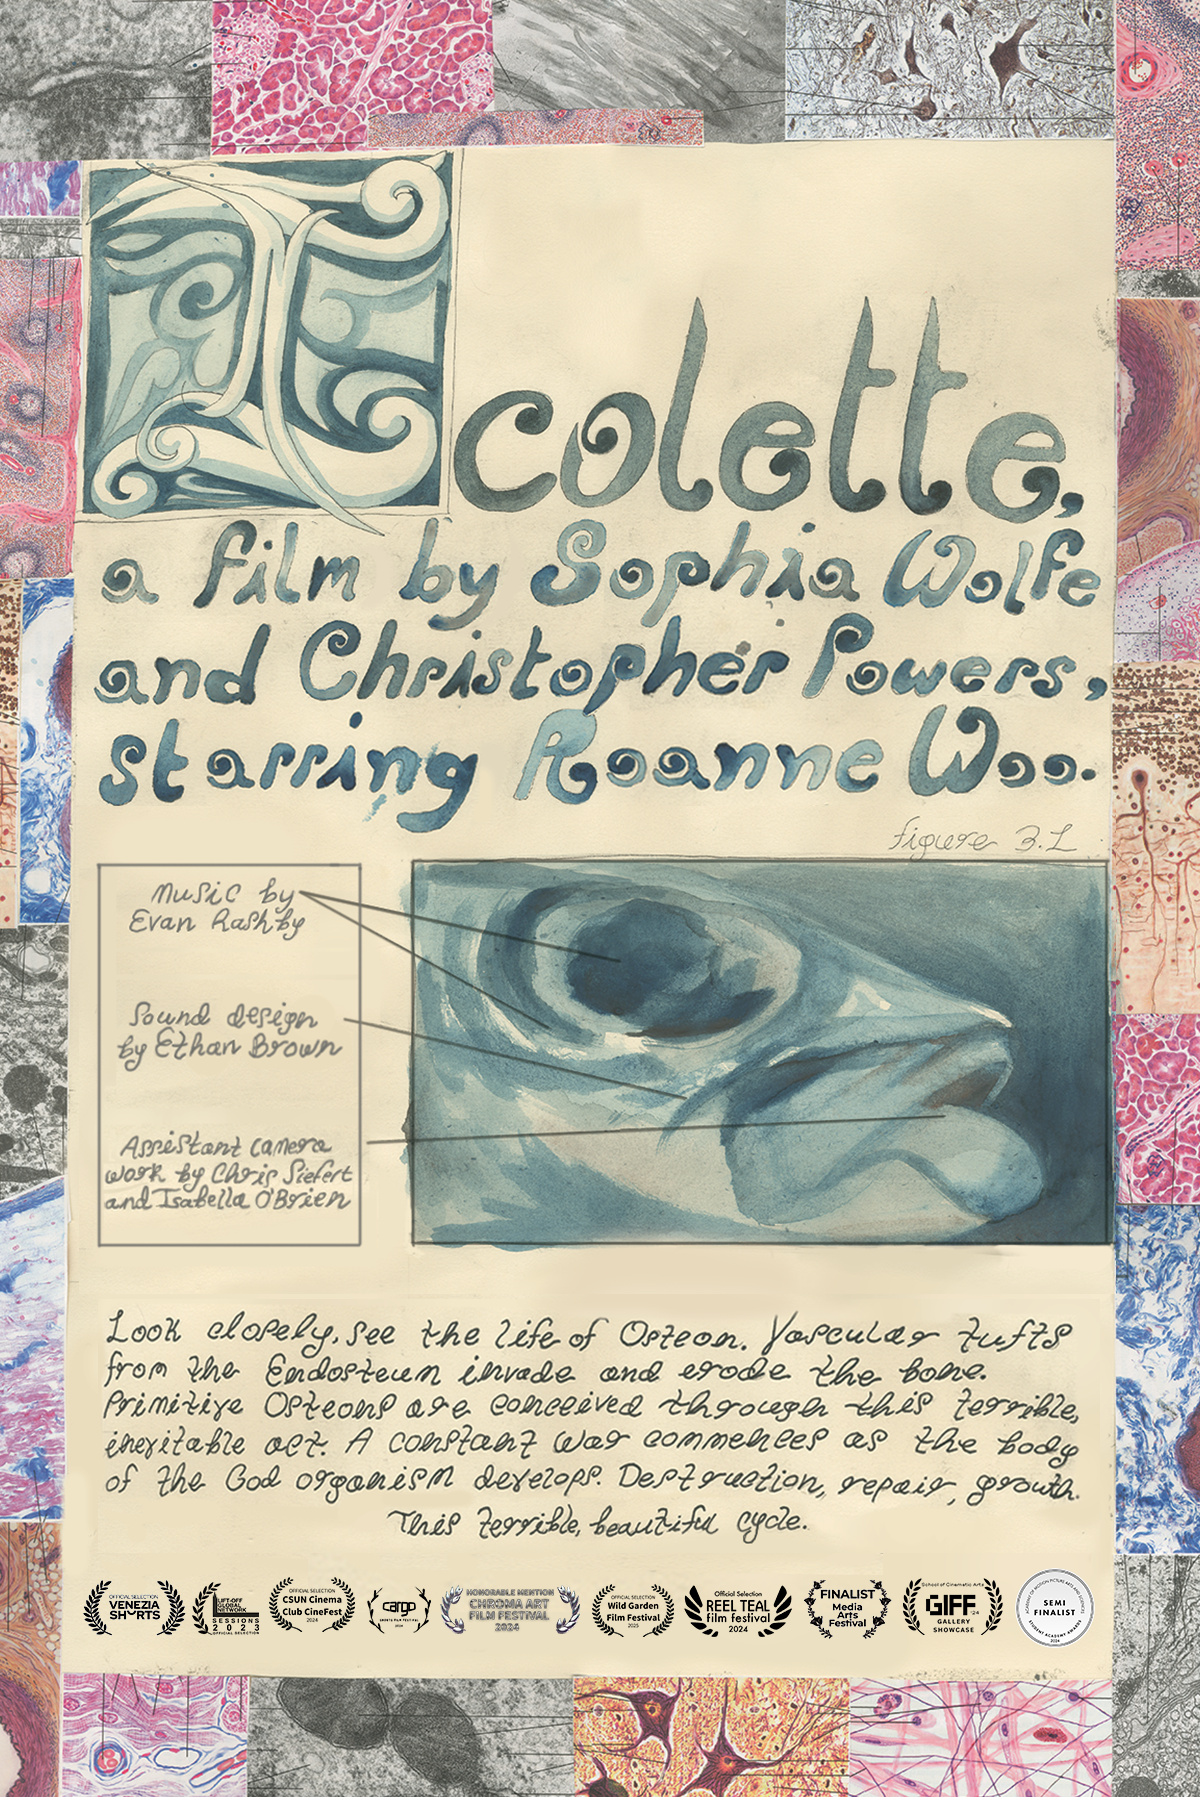 I colette,
a film by Sophia Wolfe
and Christopher Powers,
starring Roanne Woo.
figure 3.1
Music by
Evan Rashby
Sound design
by Ethan Brown
Assistant camera
work by Chris Siefert
and Isabella O'Brien
Look closely, see the life of Osteon. Vascular tufts
from the Endosteum invade and erode the bone.
Primitive Osteons are conceived through this terrible,
inevitable act. A constant war commences as the body
of the God organism develops. Destruction, repair, growth.
This terrible, beautiful cycle.
OFFICIAL SELECTION
VENEZIA
SHORTS
LIFT-OFF
GLOBAL
NETWORK
SESSIONS
2023
OFFICIAL SELECTION
OFFICIAL SELECTION
CSUN Cinema
Club CineFest
2024
cargo
HONORABLE MENTION
CHROMA ART
FILM FESTIVAL
2024
OFFICIAL SELECTION
Wild Garden
Film Festival
2025
Official Selection
REEL TEAL
film festival
2024
FINALIST
Media
Arts
Festival
School of Cinematic Arts
GIFF '24
GALLERY
SHOWCASE
SEMI
FINALIST
STUDENT ACADEMY AWARDS
2024